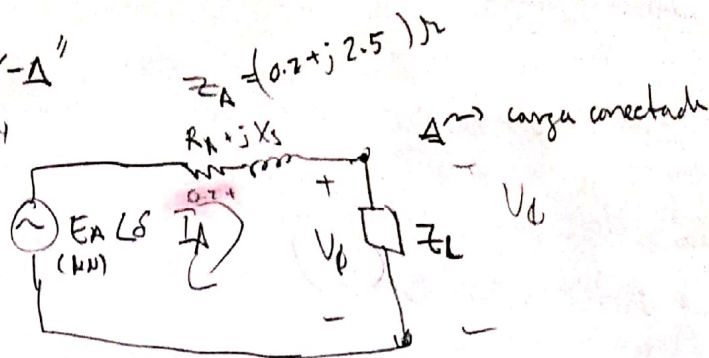 -Δ"
Z_A = (0.2 + j 2.5) Ω
R_A + j X_S
0.2 +
Δ ~> carga conectada
E_A ∠δ
I_A
+
V_φ
-
Z_L
-
V_φ
-